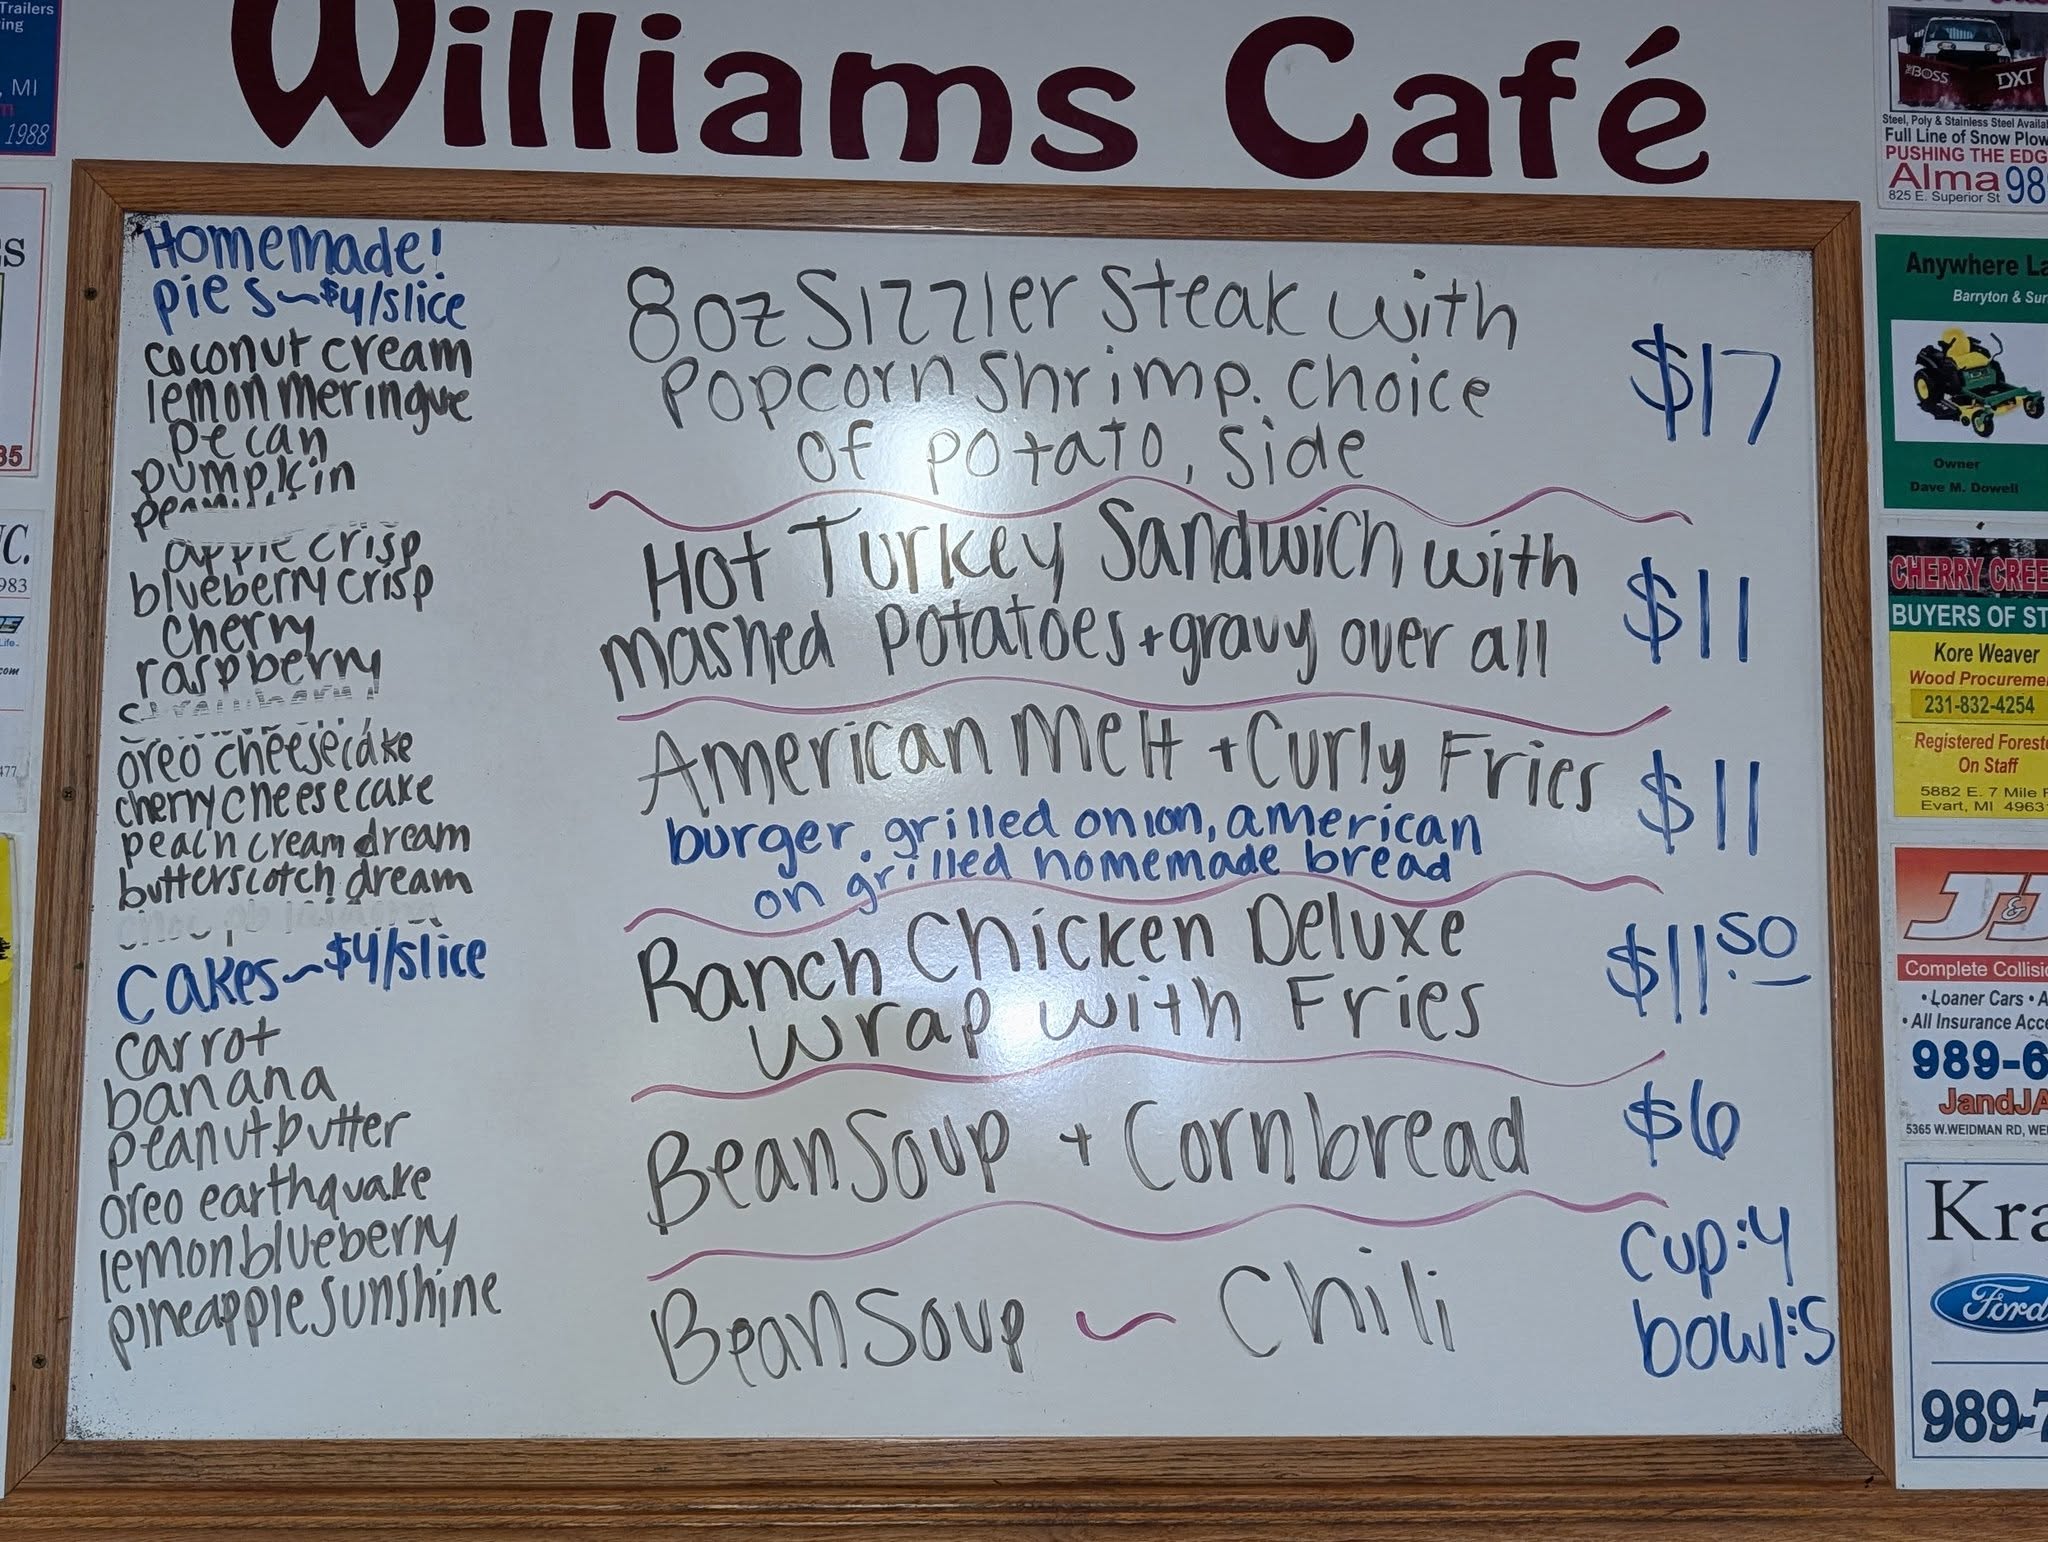 Trailers
ing
, MI
m
1988
Williams Café
Homemade!
pies ~ $4/slice
coconut cream
lemon meringue
pecan
pumpkin
apple crisp
blueberry crisp
cherry
raspberry
oreo cheesecake
cherry cheesecake
peach cream dream
butterscotch dream
Cakes ~ $4/slice
carrot
banana
peanut butter
oreo earthquake
lemon blueberry
pineapple sunshine
8oz Sizzler Steak with
Popcorn Shrimp. Choice
of potato, side
$17
Hot Turkey Sandwich with
mashed potatoes + gravy over all
$11
American Melt + Curly Fries
burger, grilled onion, american
on grilled homemade bread
$11
Ranch Chicken Deluxe
Wrap with Fries
$11.50
Bean Soup + Cornbread
$6
Bean Soup ~ Chili
cup:4
bowl:5
BOSS DXT
Steel, Poly & Stainless Steel Availa
Full Line of Snow Plow
PUSHING THE EDG
Alma 98
825 E. Superior St
Anywhere La
Barryton & Sur
Owner
Dave M. Dowell
CHERRY CREE
BUYERS OF ST
Kore Weaver
Wood Procureme
231-832-4254
Registered Foreste
On Staff
5882 E. 7 Mile R
Evart, MI 4963
J&J
Complete Collisio
• Loaner Cars • A
• All Insurance Acce
989-6
JandJA
5365 W.WEIDMAN RD, WE
Kra
Ford
989-7
S
35
C.
983
Life.
com
477